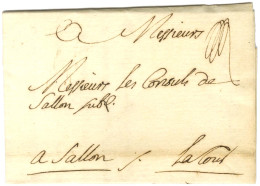 A Messieurs
Messieurs les Consuls de
Sallon
a Sallon